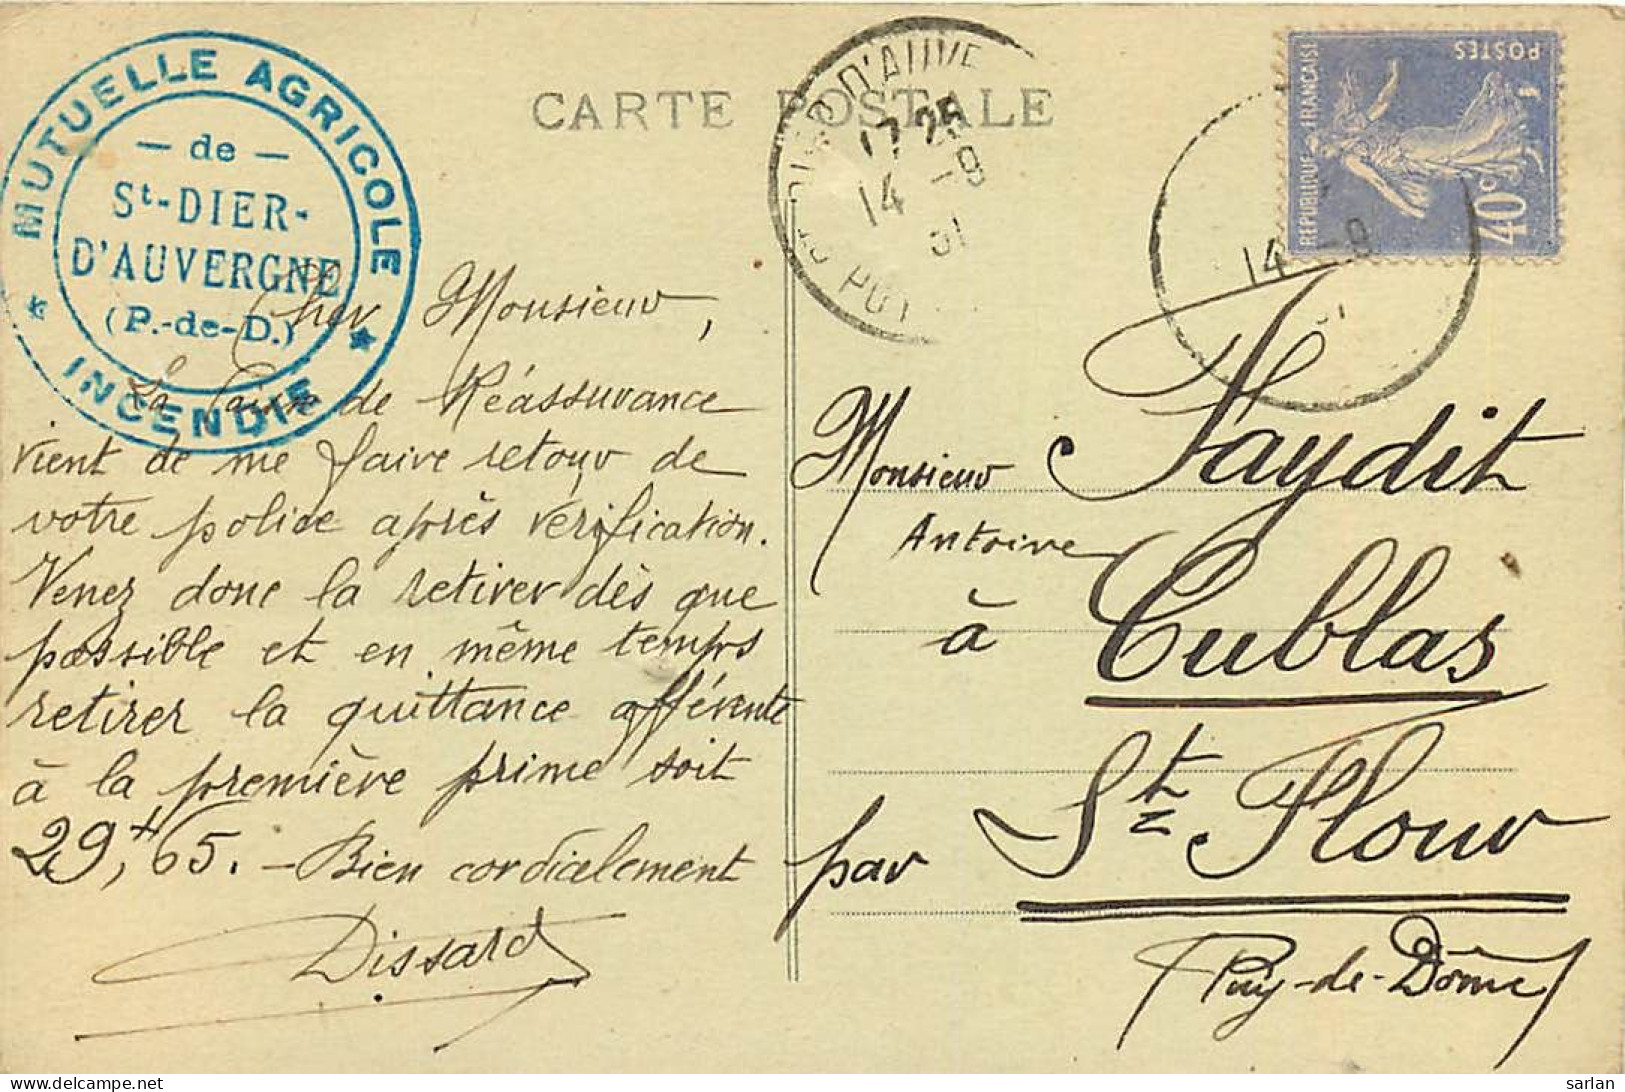 MUTUELLE AGRICOLE
— de —
St-DIER-
D'AUVERGNE
(P.-de-D.)
* INCENDIE *
CARTE POSTALE
ST DIER D'AUVE
17 25
14 -9
31
PUY
POSTES
REPUBLIQUE FRANÇAISE
40c
14 -9
31
Cher Monsieur,
La Caisse de Réassurance
vient de me faire retour de
votre police après vérification.
Venez donc la retirer dès que
possible et en même temps
retirer la quittance afférente
à la première prime soit
29,65. - Bien cordialement
Dissard
Monsieur Faydit
Antoine
à Cublas
par St Flour
(Puy-de-Dôme)
sarlan